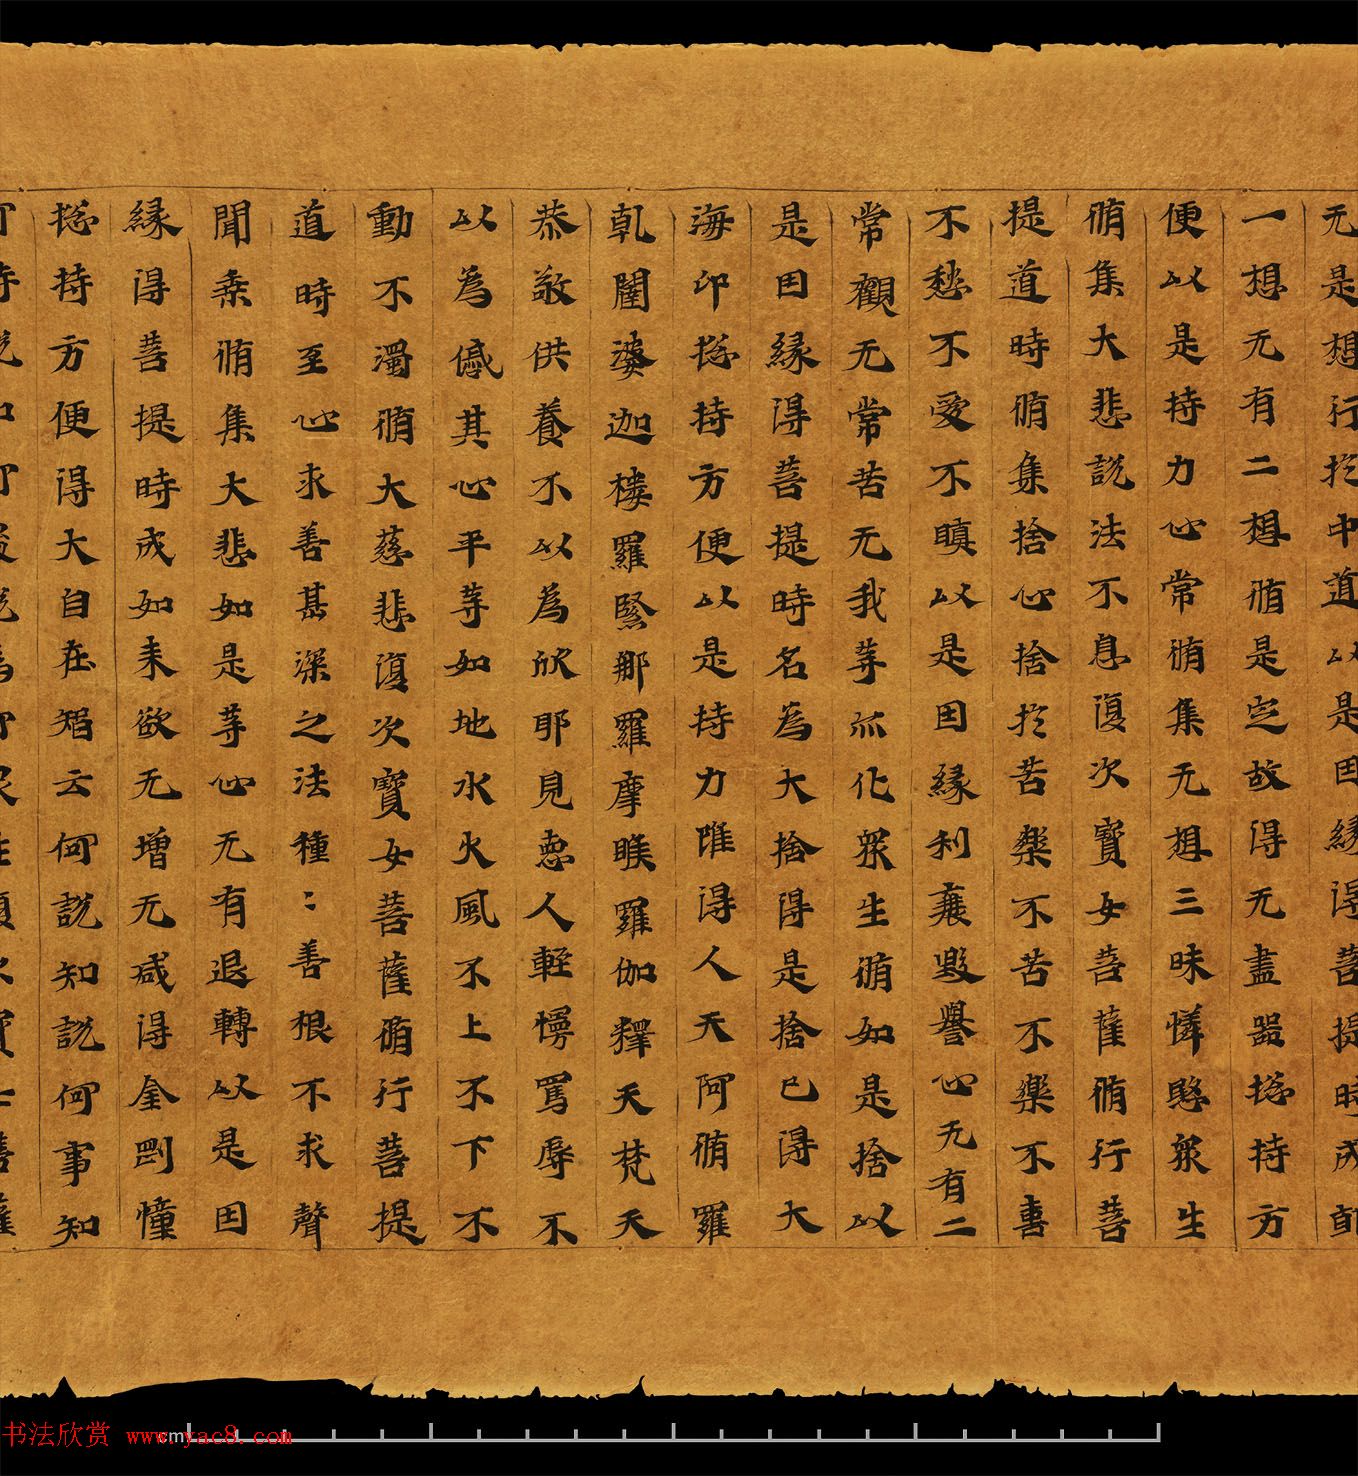 无是想行扵中道以是因縁得菩提時成就
一想无有二想脩是定故得无盡器捴持方
便以是持力心常脩集无想三昧憐愍衆生
脩集大悲説法不息復次寳女菩薩脩行菩
提道時脩集捨心捨扵苦樂不苦不樂不憙
不愁不愛不瞋以是因縁利衰毀譽心无有二
常觀无常苦无我等示化衆生脩如是捨以
是因縁得菩提時名為大捨得是捨已得大
海印捴持方便以是持力唯得人天阿脩羅
乹闥婆迦樓羅緊那羅摩睺羅伽釋天梵天
恭敬供養不以為欣耶見惡人輕慢罵辱不
以為慼其心平等如地水火風不上不下不
動不濁脩大慈悲復次寳女菩薩脩行菩提
道時至心求善甚深之法種〻善根不求聲
聞乗脩集大悲如是等心无有退轉以是因
縁得菩提時成如来欲无增无減得金剛憧
捴持方便得大自在智云何説知説何事知